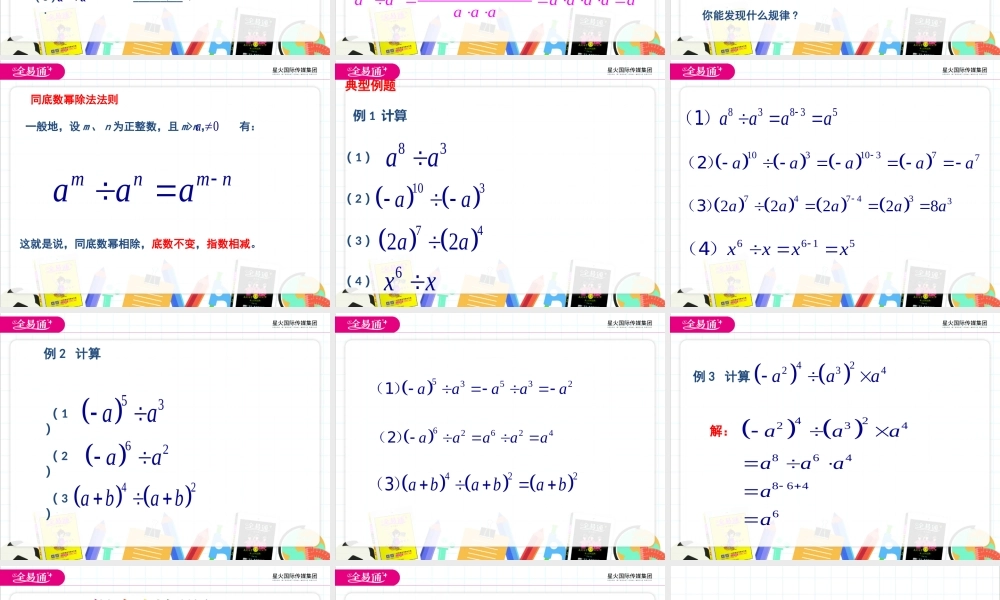 a · a · a
你能发现什么规律？
全易通
星火国际传媒集团
同底数幂除法法则
一般地，设 m 、 n 为正整数，且 m>n, a≠0 有：
a^m ÷ a^n = a^(m-n)
这就是说，同底数幂相除，底数不变，指数相减。
全易通
星火国际传媒集团
典型例题
例 1 计算
( 1 ) a^8 ÷ a^3
( 2 ) (-a)^10 ÷ (-a)^3
( 3 ) (2a)^7 ÷ (2a)^4
( 4 ) x^6 ÷ x
全易通
星火国际传媒集团
（1） a^8 ÷ a^3 = a^(8-3) = a^5
（2）(-a)^10 ÷ (-a)^3 = (-a)^(10-3) = (-a)^7 = -a^7
（3）(2a)^7 ÷ (2a)^4 = (2a)^(7-4) = (2a)^3 = 8a^3
（4）x^6 ÷ x = x^(6-1) = x^5
全易通
星火国际传媒集团
例 2 计算
( 1 ) (-a)^5 ÷ a^3
( 2 ) (-a)^6 ÷ a^2
( 3 ) (a+b)^4 ÷ (a+b)^2
全易通
星火国际传媒集团
（1）(-a)^5 ÷ a^3 = -a^5 ÷ a^3 = -a^2
（2）(-a)^6 ÷ a^2 = a^6 ÷ a^2 = a^4
（3）(a+b)^4 ÷ (a+b)^2 = (a+b)^2
全易通
星火国际传媒集团
例 3 计算 (-a^2)^4 ÷ (a^3)^2 × a^4
解： (-a^2)^4 ÷ (a^3)^2 × a^4
= a^8 ÷ a^6 · a^4
= a^(8-6+4)
= a^6
全易通
星火国际传媒集团
全易通
星火国际传媒集团